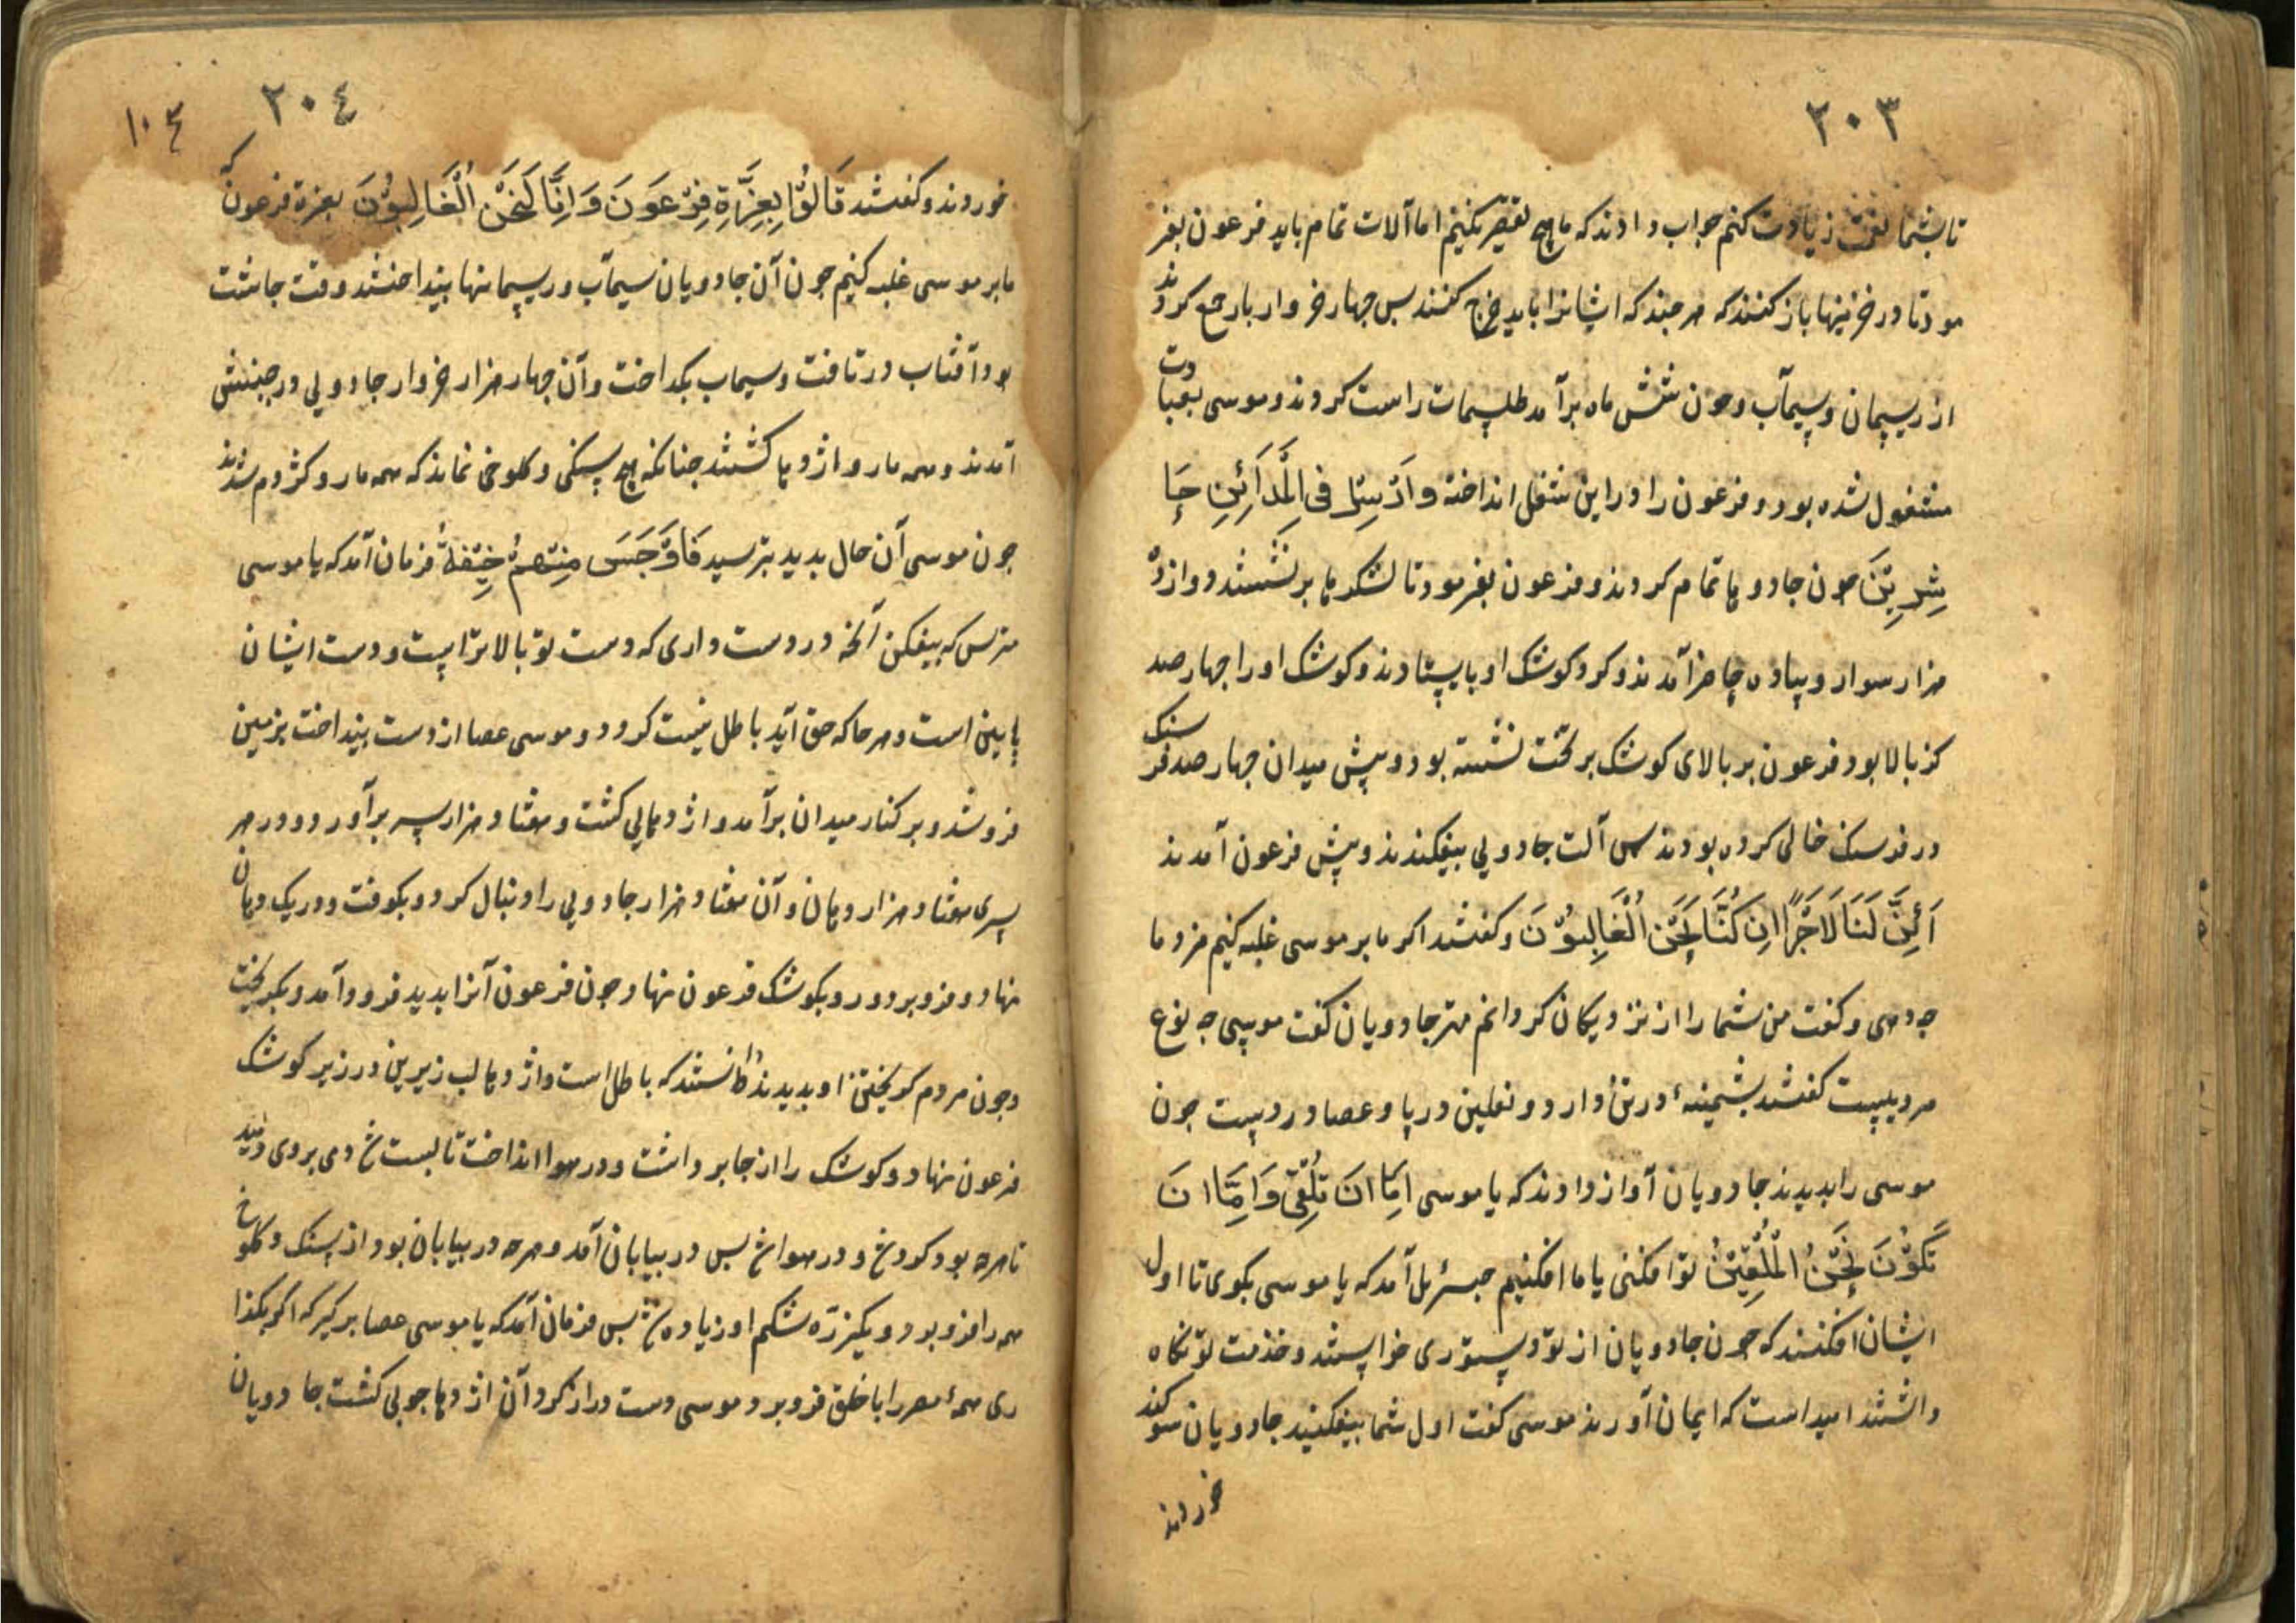 ٢٠٣
تا بشما نعمت زیادت کنم جواب دادند که ما هیچ تقصیر نکنیم اما آلات تمام باید فرعون بفر
مود تا در خزینها باز کنند که هر چند که ایشانرا باید خرج کنند بس چهار خروار بار جمع کردند
از ریسمان و سیمآب و چون شش ماه برآمد طلسمات راست کردند و موسی بعبادت
مشغول شده بود و فرعون را در این شغل انداخته وَاَرْسِلْ فِی الْمَدَآئِنِ حَا
شِرِیْنَ چون جادوها تمام کردند و فرعون بفرمود تا لشکرها برنشستند دوازده
هزار سوار و پیاده حاضر آمدند و کرد کوشک او بایستادند و کوشک او را چهار صد
کز بالا بود فرعون بر بالای کوشک بر تخت نشسته بود و پیش میدان چهار صد فرسنک
در فرسنک خالی کرده بودند بس آلت جادویی بیفکندند و پیش فرعون آمدند
اَئِنَّ لَنَا لَاَجْرًا اِنْ كُنَّا نَحْنُ الْغَالِبِوُنَ و کفتند اکر ما بر موسی غلبه کنیم مزد ما
چه دهی و کفت من شما را از نزدیکان کردانم مهتر جادویان کفت موسی چه نوع
مردیست کفتند پشمینهٔ در تن دارد و نعلین در پا و عصا در دست چون
موسی را بدیدند جادویان آواز دادند که یا موسی اِمَّا اَنْ تُلْقِیَ وَاِمَّا اَنْ
نَكُوْنَ نَحْنُ الْمُلْقِیْنَ تو افکنی یا ما افکنیم جبرئیل آمد که یا موسی بکوی تا اول
ایشان افکنند که چون جادویان از تو دستوری خواستند و خدمت تو نکاه
داشتند امید است که ایمان آورند موسی کفت اول شما بیفکنید جادویان سوکند
خوردند
٢٠٤
١٠٣
خوردند و کفتند قَالُوْا بِعِزَّةِ فِرْعَوْنَ وَاِنَّا لَنَحْنُ الْغَالِبُوْنَ بعزة فرعون که
ما بر موسی غلبه کنیم چون آن جادویان سیمآب و ریسمانها بینداختند وقت چاشت
بود آفتاب در تافت و سیماب بکداخت و آن چهار هزار خروار جادویی در جنبش
آمدند و همه مار و اژدها کشتند چنانکه هیچ سنکی و کلوخی نماند که همه مار و کژدم شدند
چون موسی آن حال بدید بترسید فَاَوْجَسَ مِنْهُمْ خِیْفَةً فرمان آمد که یا موسی
مترس که بیفکن آنچه در دست داری که دست تو بالاتر است و دست ایشان
پایین است و هر جا که حق آید باطل نیست کردد و موسی عصا از دست بینداخت بزمین
فرو شد و بر کنار میدان برآمد و اژدهایی کشت و هفتاد هزار سر برآورد و در هر
سری هفتاد هزار دهان و آن هفتاد هزار جادویی را دنبال کرد و بکوفت و در یک دهان
نهاد و فرو برد و رو بکوشک فرعون نهاد چون فرعون آنرا بدید فرود آمد و بکریخت
و چون مردم کریختن او بدیدند دانستند که باطل است و اژدها لب زیرین در زیر کوشک
فرعون نهاد و کوشک را از جا برداشت و در هوا انداخت تا بیست
تا هر چه بود و در هوا بس در بیابان آمد و هر چه در بیابان بود از سنک و کلوخ
همه را فرو برد و یکذره شکم او زیاده بس فرمان آمد که یا موسی عصا بر کیر که اکر بکذا
ری همهٔ مصر را با خلق فرو برد موسی دست دراز کرد آن اژدها چوبی کشت جادویان